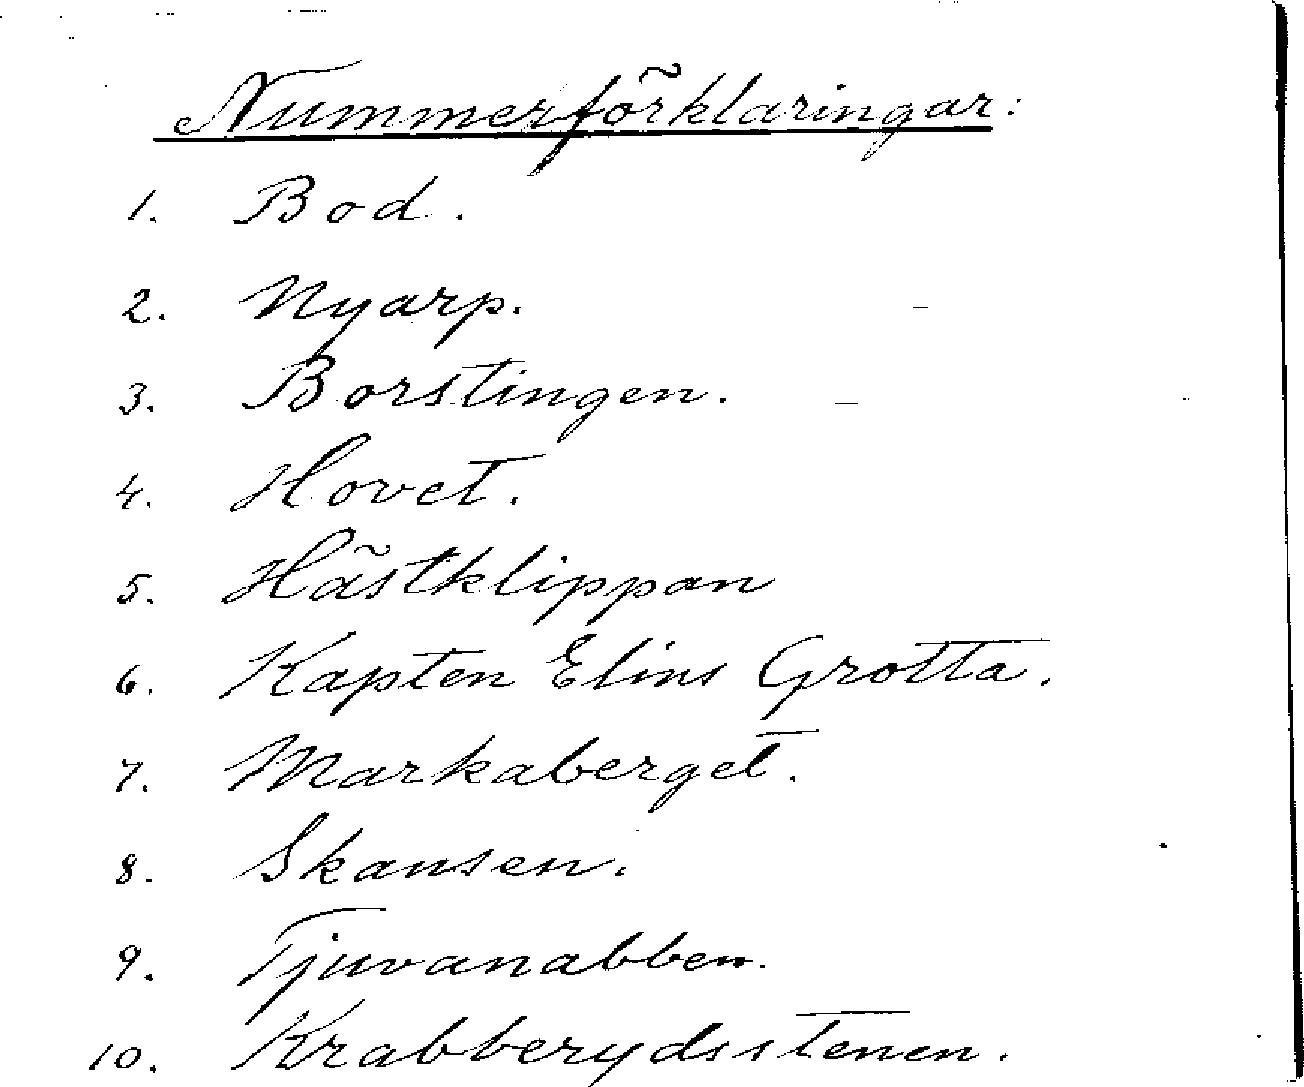 Nummerförklaringar:
1. Bod.
2. Nyarp.
3. Borstingen.
4. Hovet.
5. Hästklippan
6. Kapten Elins Grotta.
7. Markaberget.
8. Skansen.
9. Tjuvanabben.
10. Krabberydsstenen.